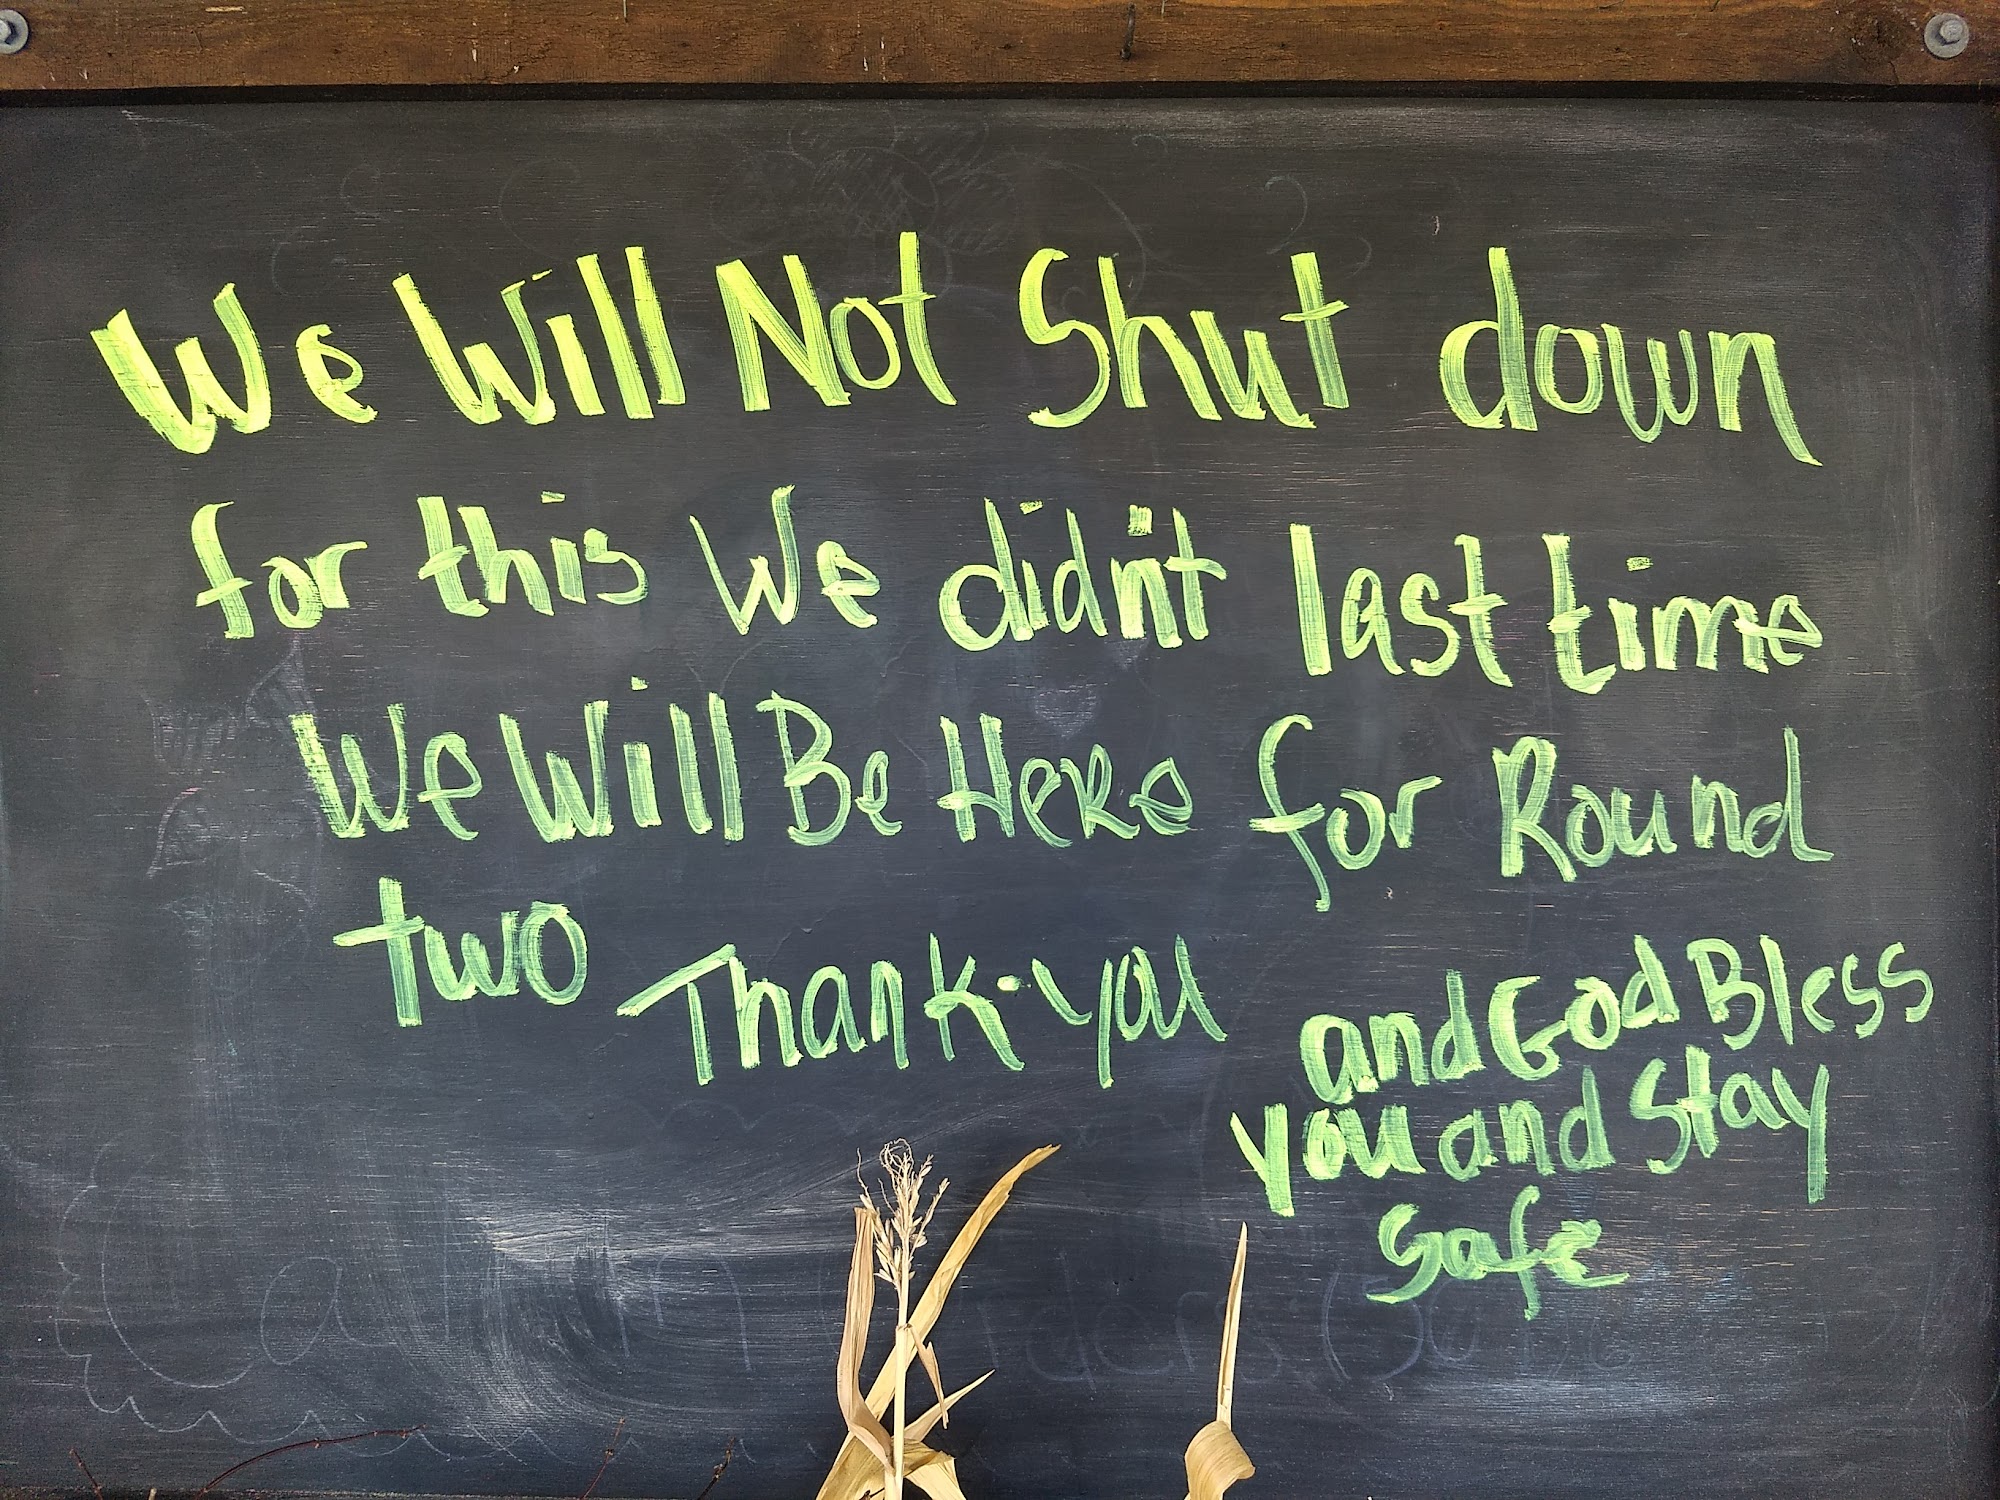 We Will Not Shut down
for this We didn't last time
We Will Be Here for Round
two Thank-you
and God Bless
you and Stay
Safe